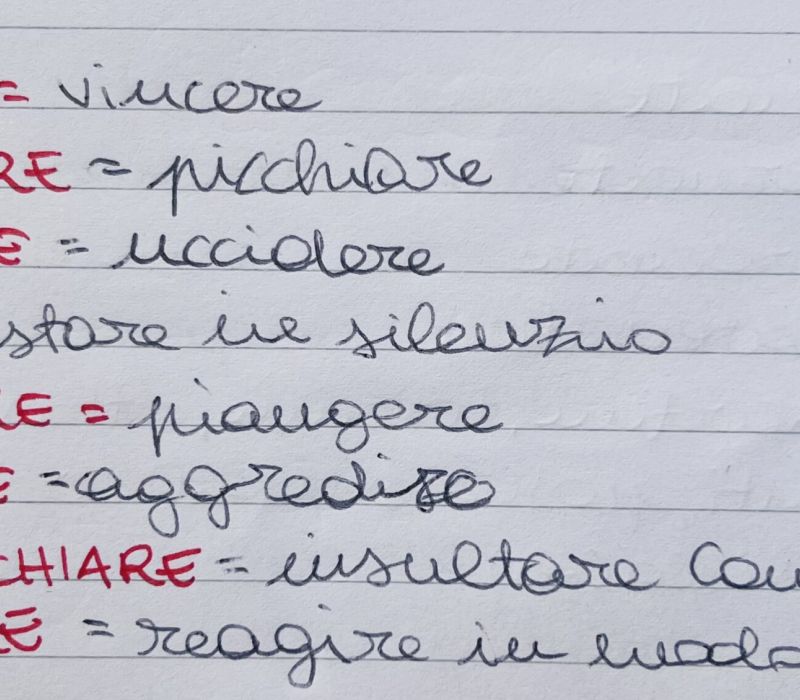 = vincere
RE = picchiare
E = uccidere
stare in silenzio
RE = piangere
E = aggredire
CHIARE = insultare con
RE = reagire in modo